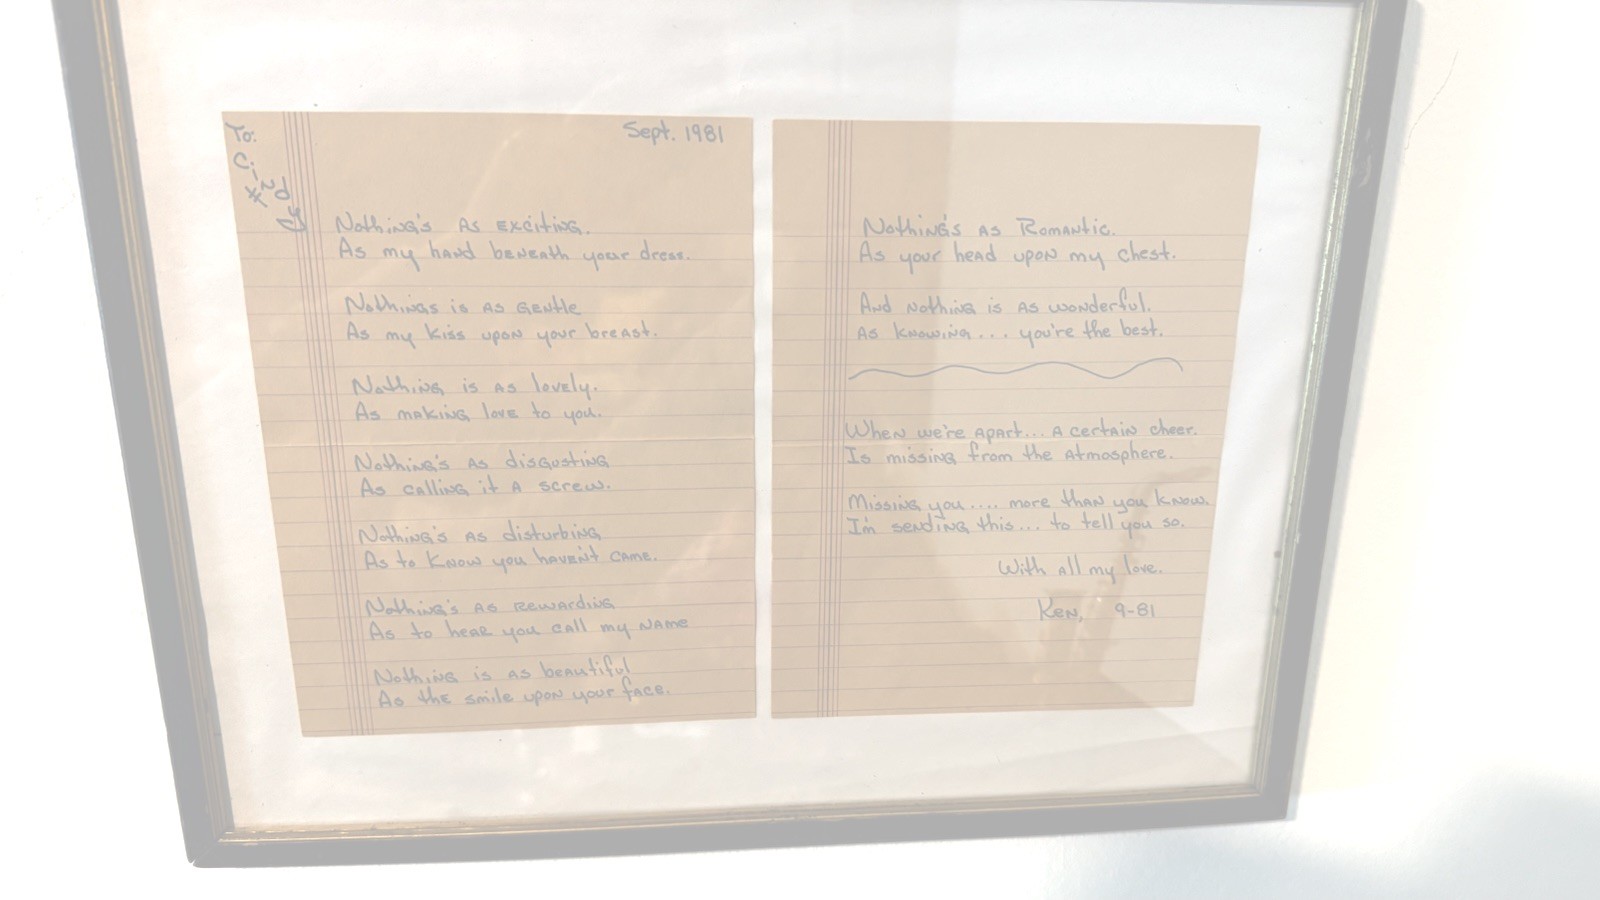 To:
Cindy
Sept. 1981
Nothing's as exciting.
As my hand beneath your dress.
Nothings is as gentle
As my kiss upon your breast.
Nothing is as lovely.
As making love to you.
Nothing's as disgusting
As calling it a screw.
Nothing's as disturbing
As to know you haven't came.
Nothing's as rewarding
As to hear you call my name
Nothing is as beautiful
As the smile upon your face.
Nothing's as Romantic.
As your head upon my chest.
And nothing is as wonderful.
As knowing... you're the best.
When we're apart... a certain cheer.
Is missing from the atmosphere.
Missing you.... more than you know.
I'm sending this... to tell you so.
With all my love.
Ken, 9-81